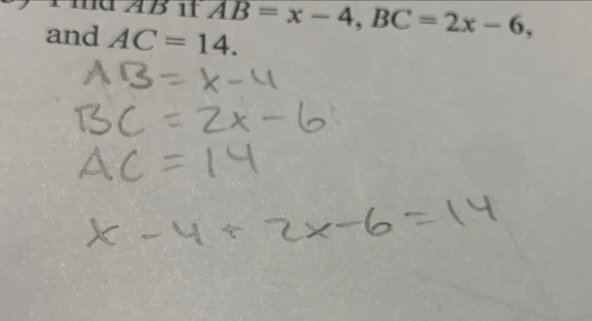 AB if AB = x – 4, BC = 2x – 6,
and AC = 14.
AB = x - 4
BC = 2x - 6
AC = 14
x - 4 + 2x - 6 = 14